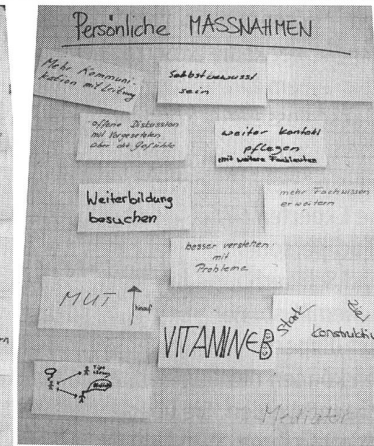 Persönliche MASSNAHMEN
Mehr Kommuni-
kation mit Leitung
Selbstbewusst
sein
offene Diskussion
mit Vorgesetzten
über die Gefühle
weiter Kontakt
pflegen
mit weitere Fachleuten
Weiterbildung
besuchen
mehr Fachwissen
erweitern
besser verstehen
mit
Probleme
MUT
hinauf
VITAMINE B
Stark
Konstruktiv
Mediator